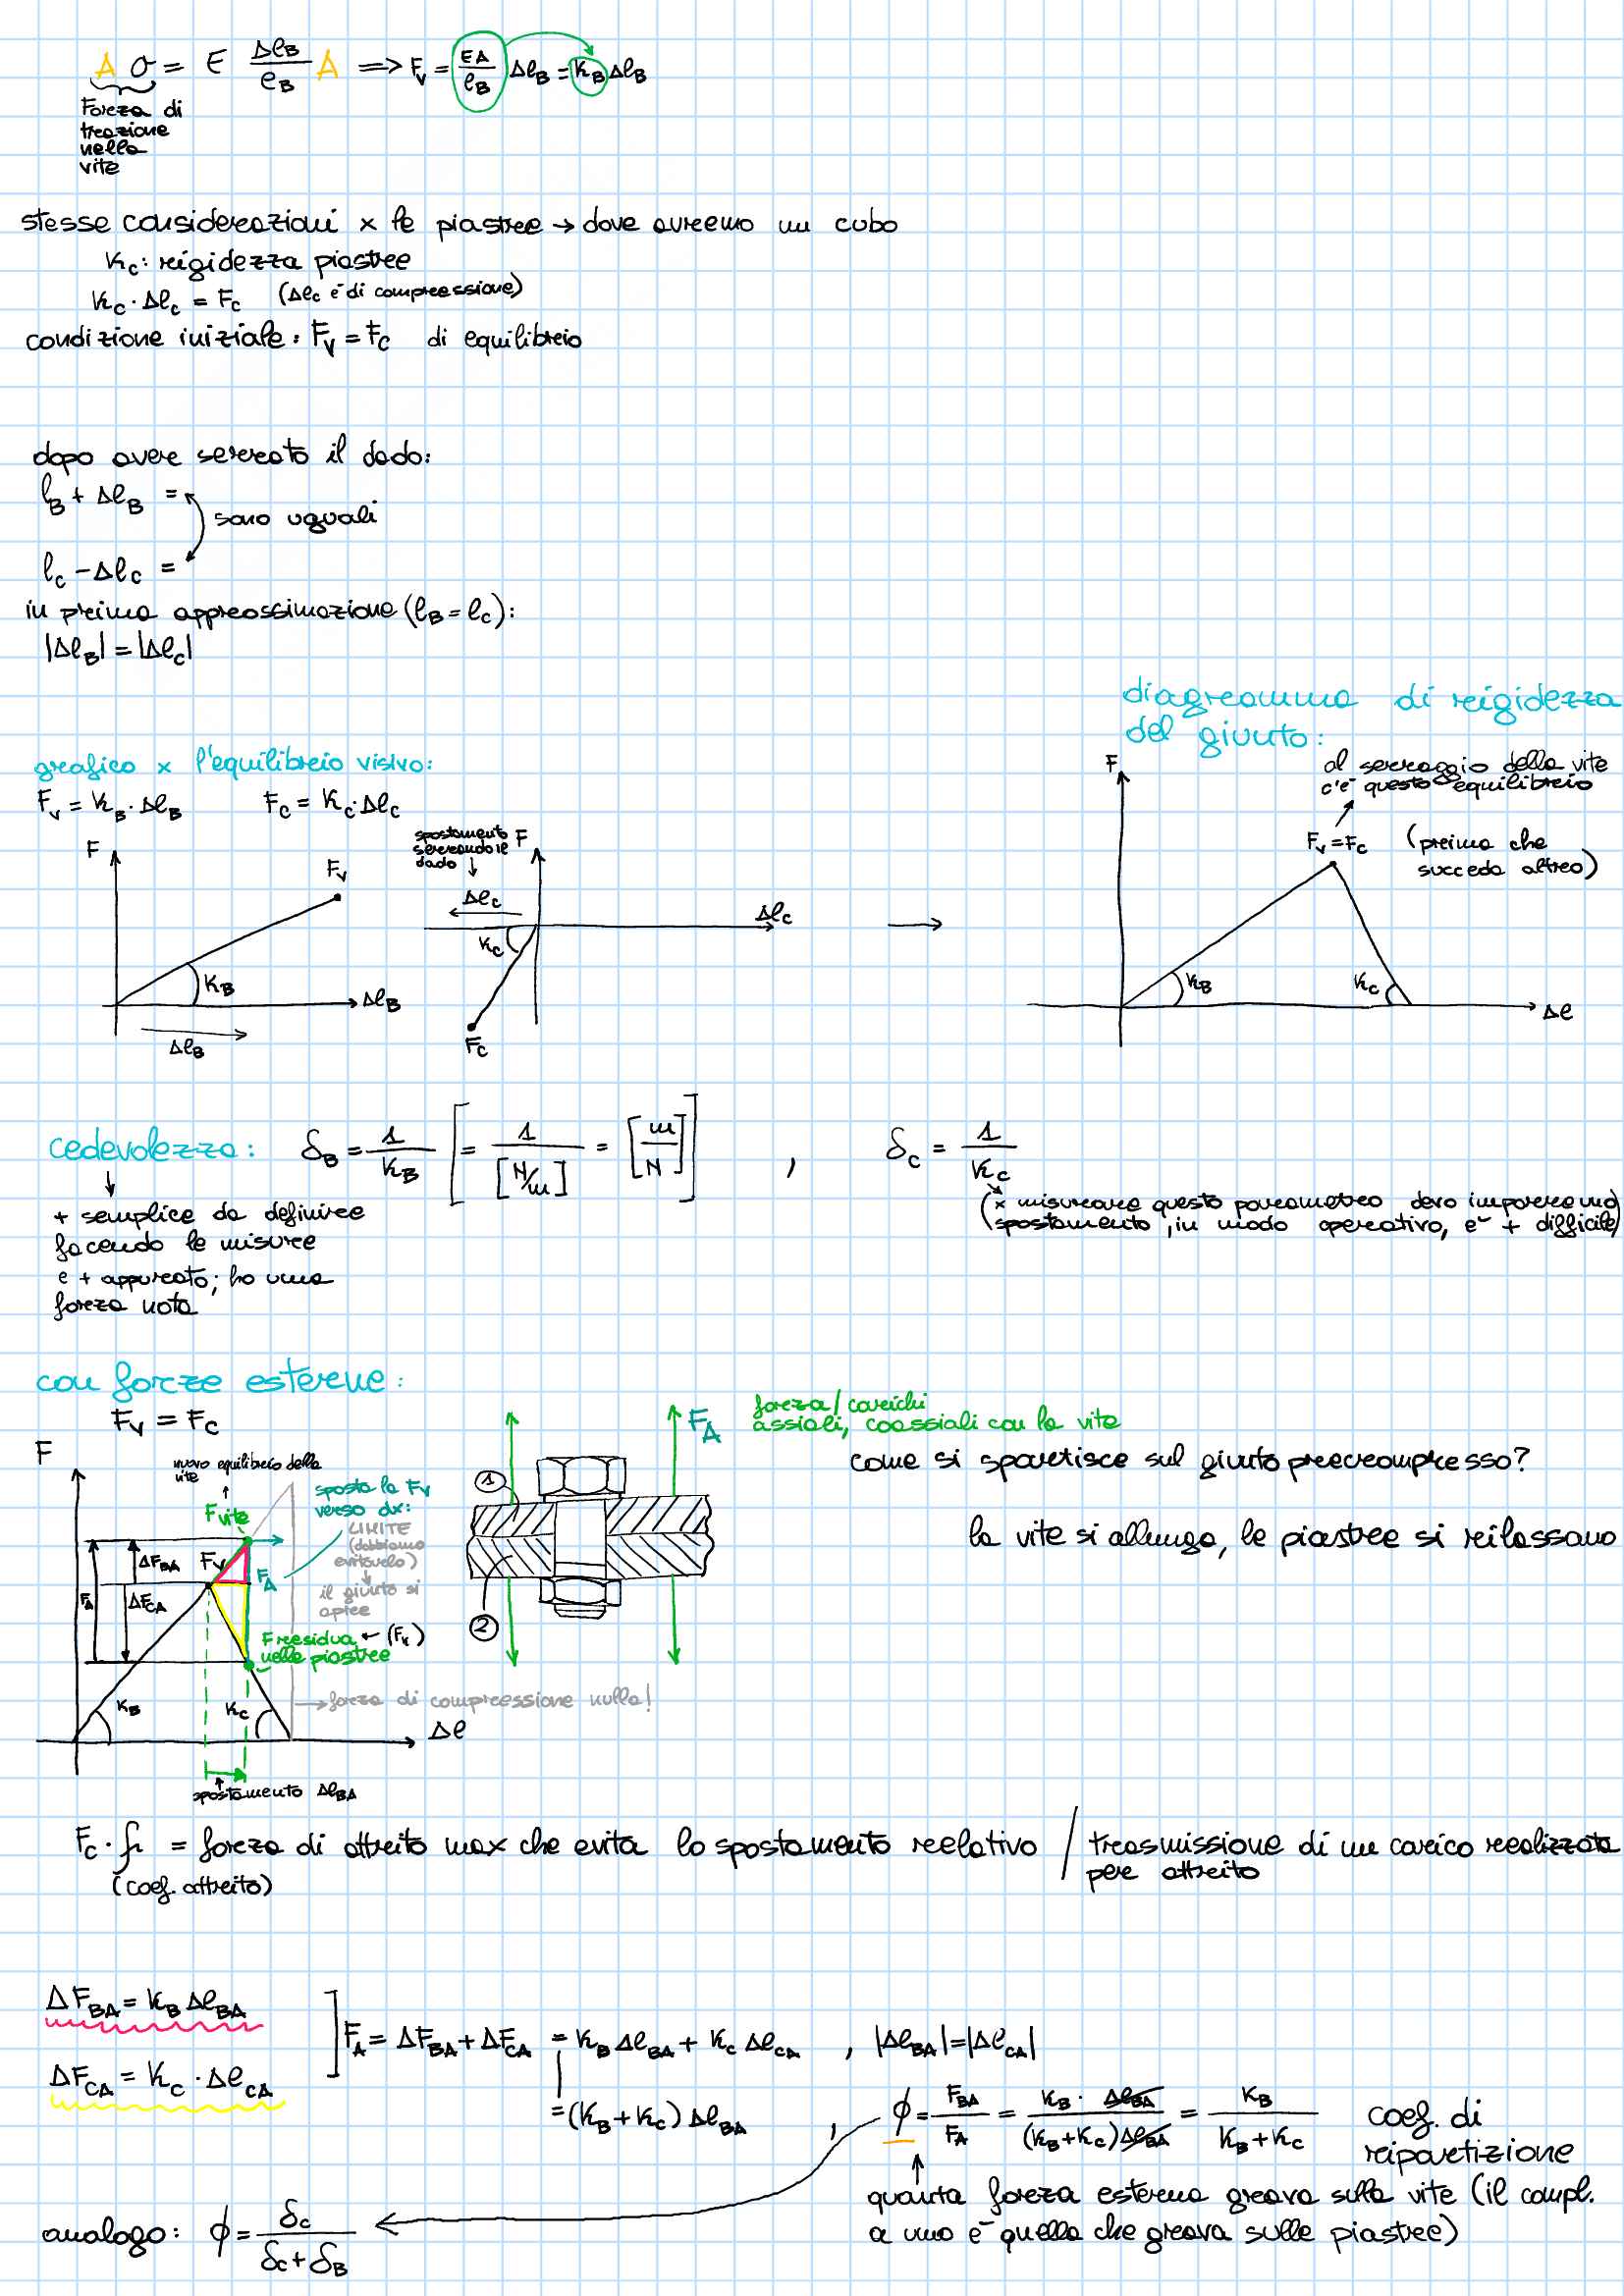 A σ = E Δl_B/l_B A ⇒ F_V = EA/l_B Δl_B = K_B Δl_B
Forza di
trazione
nella
vite
stesse considerazioni x le piastre → dove avremo un cubo
K_C: rigidezza piastre
K_C · Δl_C = F_C (Δl_C è di compressione)
condizione iniziale: F_V = F_C di equilibrio
dopo avere serrato il dado:
l_B + Δl_B =
sono uguali
l_C - Δl_C =
in prima approssimazione (l_B = l_C):
|Δl_B| = |Δl_C|
diagramma di rigidezza
del giunto:
grafico x l'equilibrio visivo:
F_V = K_B · Δl_B F_C = K_C · Δl_C
F
F_V
K_B
Δl_B
Δl_B
spostamento
serrando il
dado ↓
F
Δl_C
Δl_C
K_C
F_C
→
F
al serraggio della vite
c'è questo equilibrio
F_V = F_C (prima che
succeda altro)
K_B
K_C
Δl
cedevolezza: δ_B = 1/K_B [= 1/[N/m] = [m/N]] , δ_C = 1/K_C
↓
+ semplice da definire
facendo le misure
e + appurato; ho una
forza nota
(x misurare questo parametro devo imporre uno
spostamento, in modo operativo, è + difficile)
con forze esterne:
F_V = F_C
F
nuovo equilibrio della
vite
F vite
sposta la F_V
verso dx:
LIMITE
(dobbiamo
evitarlo)
il giunto si
apre
ΔF_BA
F_V
F_A
F_A
ΔF_CA
F residua ← (F_K)
nelle piastre
→ forza di compressione nulla!
K_B
K_C
Δl
spostamento Δl_BA
1
2
F_A
forza/carichi
assiali, coassiali con la vite
come si spartisce sul giunto precompresso?
la vite si allunga, le piastre si rilassano
F_C · f_r = forza di attrito max che evita lo spostamento relativo / trasmissione di un carico realizzata
per attrito
(coef. attrito)
ΔF_BA = K_B Δl_BA
ΔF_CA = K_C · Δl_CA
F_A = ΔF_BA + ΔF_CA = K_B Δl_BA + K_C Δl_CA , |Δl_BA| = |Δl_CA|
= (K_B + K_C) Δl_BA , ϕ = F_BA/F_A = K_B · Δl_BA/(K_B + K_C) Δl_BA = K_B/K_B + K_C coef. di
ripartizione
↑
quanta forza esterna grava sulla vite (il compl.
a uno è quella che grava sulle piastre)
analogo: ϕ = δ_C/δ_C + δ_B